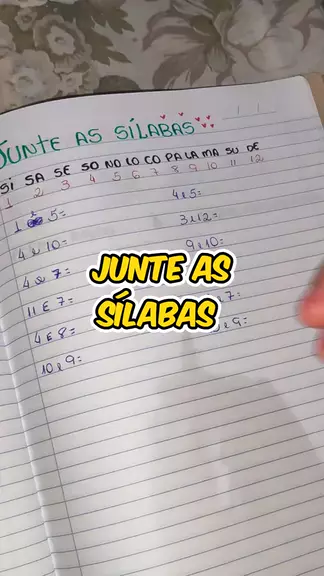 JUNTE AS SÍLABAS
SI SA SE SO NO LO CO PA LA MA SU DE
1 2 3 4 5 6 7 8 9 10 11 12
1 e 5=
4 e 5=
4 e 10=
3 e 12=
4 e 7=
9 e 10=
11 E 7=
7=
4 E 8=
e 9=
10 e 9=
JUNTE AS
SÍLABAS